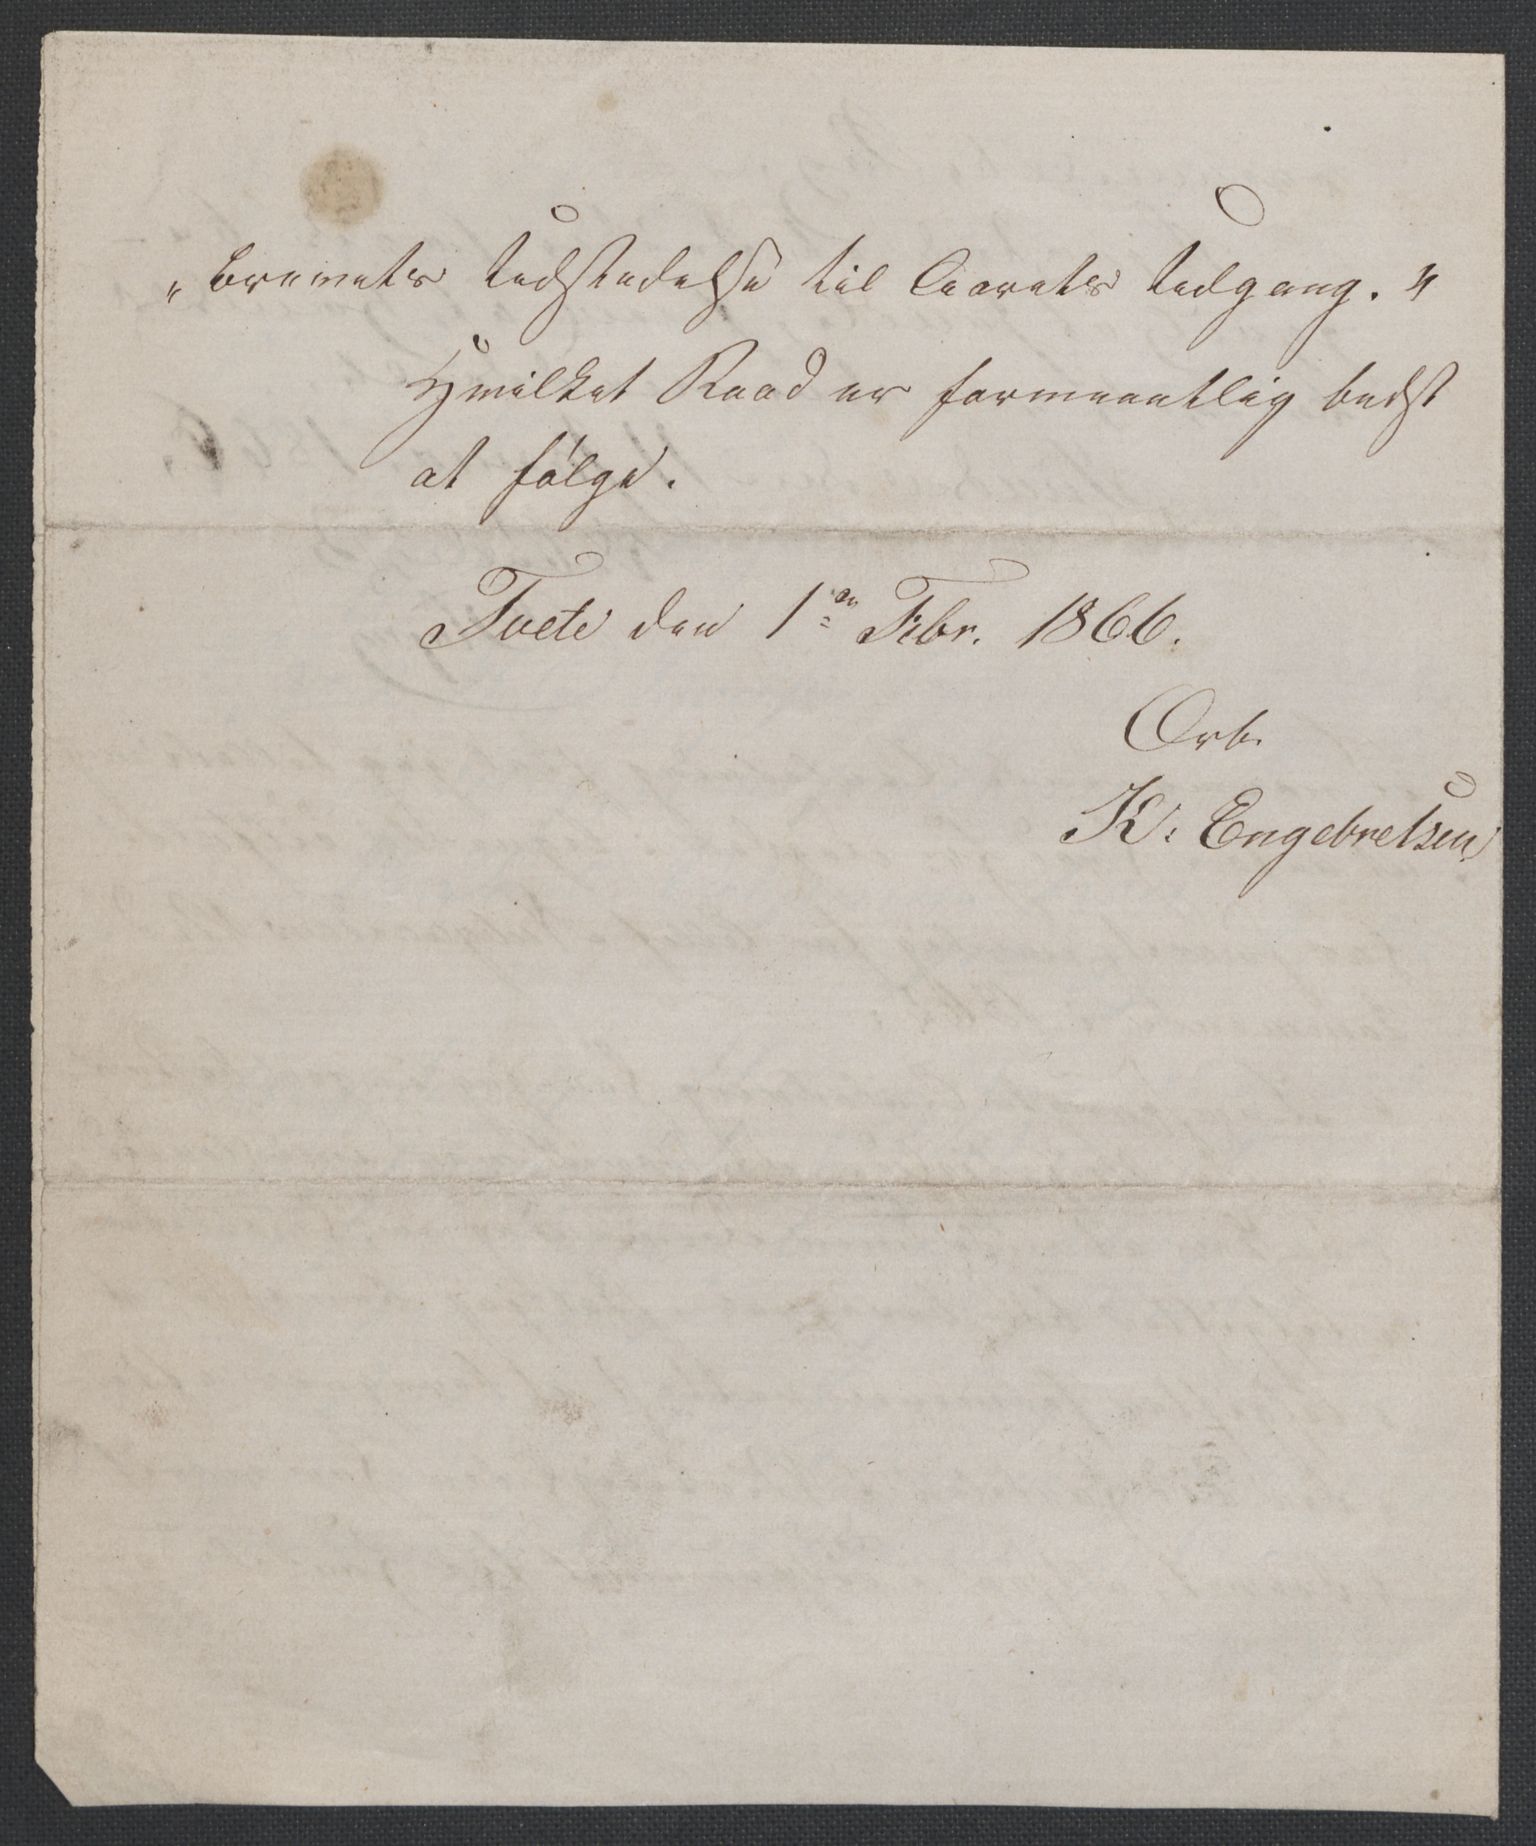 „Brevets Udstedelse til Aarets Udgang."
Hvilket Raad er formeentlig bedst
at følge.
Tvete den 1ste Febr. 1866.
Ærb.
K. Engebretsen